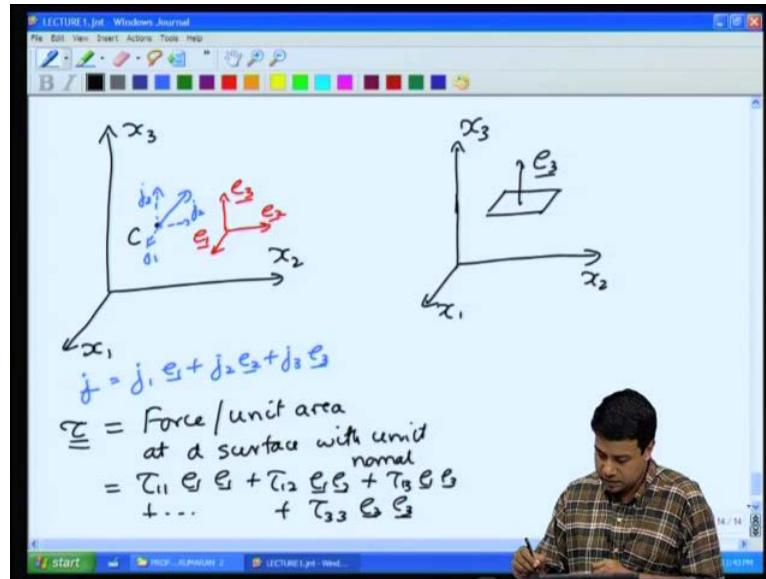 LECTURE1.jnt - Windows Journal
File Edit View Insert Actions Tools Help
B I
x₃
x₃
e₃
e₃
j₃
j₂
C
e₂
e₁
j₁
x₂
x₂
x₁
x₁
j = j₁ e₁ + j₂ e₂ + j₃ e₃
τ = Force/unit area
at a surface with unit
normal
= τ₁₁ e₁ e₁ + τ₁₂ e₁ e₂ + τ₁₃ e₁ e₃
+ ... + τ₃₃ e₃ e₃
14 / 14
start
LECTURE1.jnt - Wind...